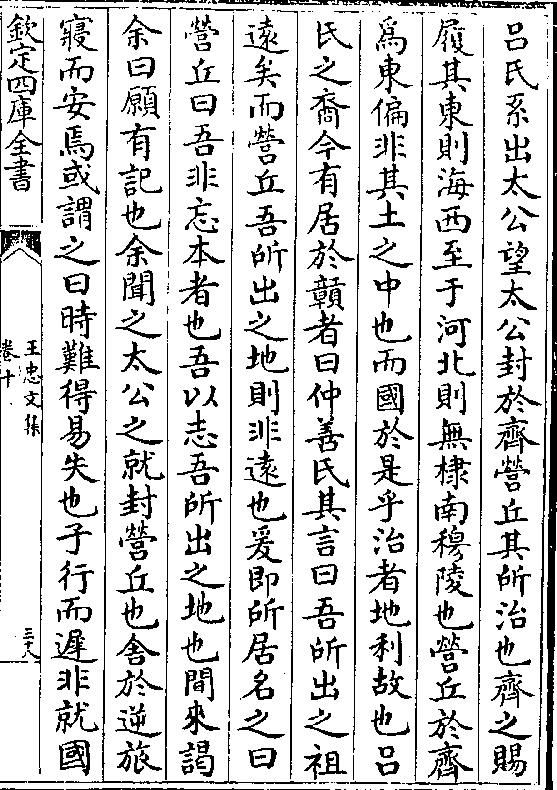 呂氏系出太公望太公封於齊營丘其所治也齊之賜
履其東則海西至于河北則無棣南穆陵也營丘於齊
爲東偏非其土之中也而國於是乎治者地利故也呂
氏之裔今有居於贛者曰仲善氏其言曰吾所出之祖
遠矣而營丘吾所出之地則非遠也爰即所居名之曰
營丘曰吾非忘本者也吾以志吾所出之地也間來謁
余曰願有記也余聞之太公之就封營丘也舍於逆旅
寢而安焉或謂之曰時難得易失也子行而遲非就國
欽定四庫全書
王忠文集
卷十
三六